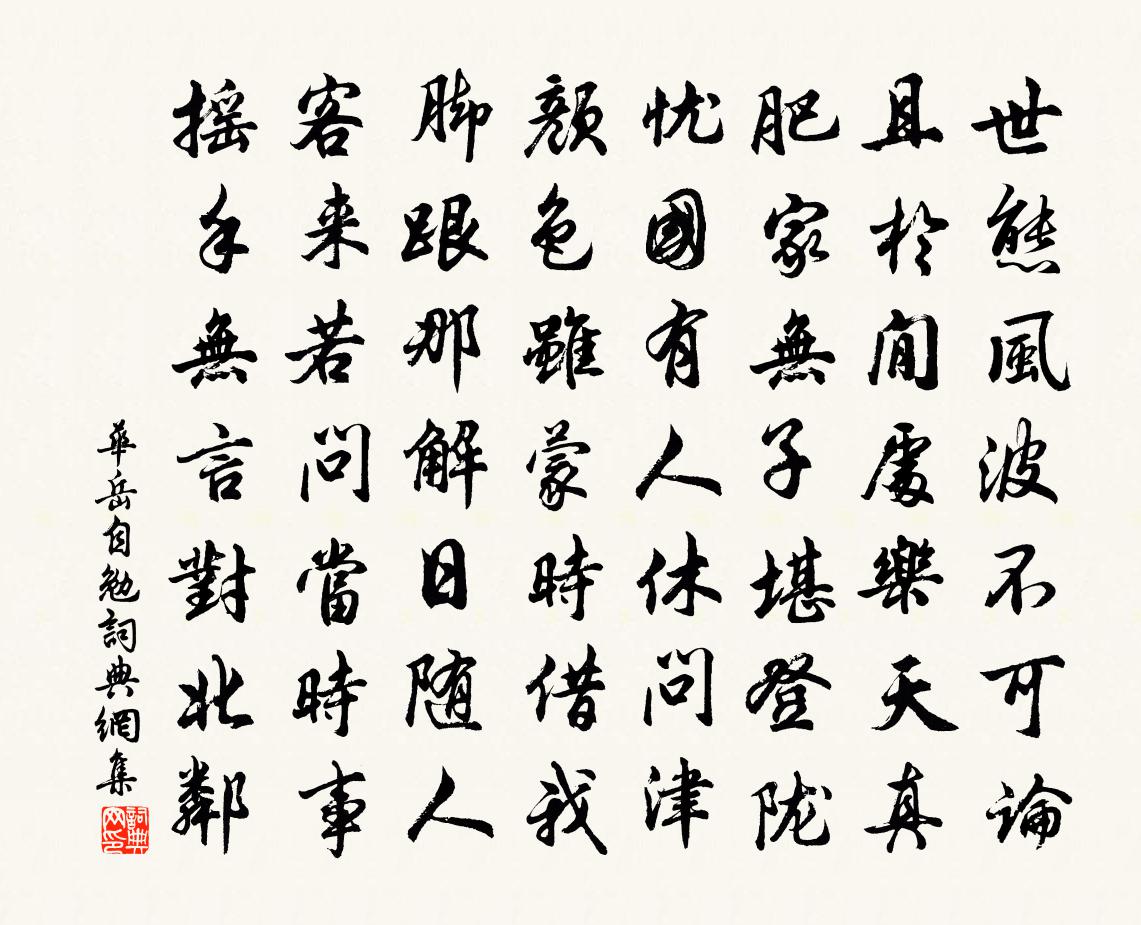 世態風波不可論
且於閒處樂天真
肥家無子堪登陇
忧國有人休問津
顏色雖蒙時借我
脚跟那解日随人
客来若問當時事
摇手無言對北鄰
華岳自勉詞典網集
詞典网印